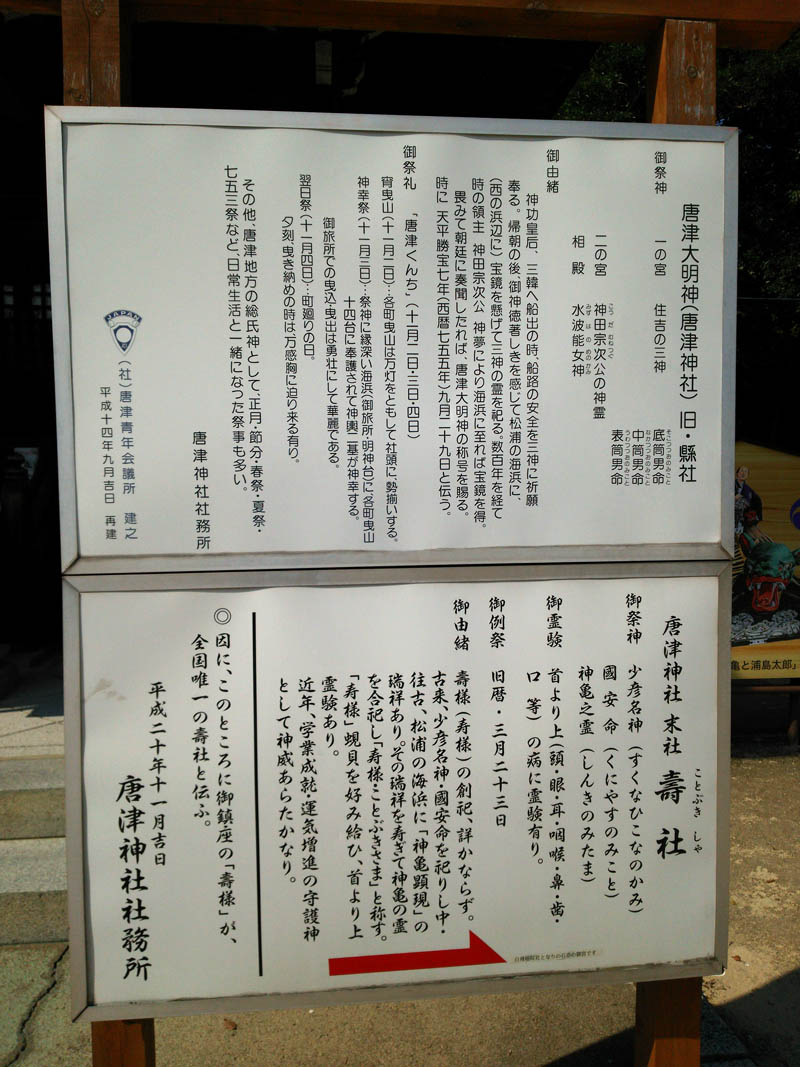 唐津大明神(唐津神社)旧・縣社
御祭神 一の宮 住吉の三神
底筒男命
そこつつおのみこと
中筒男命
なかつつおのみこと
表筒男命
うわつつおのみこと
二の宮 神田宗次公の神霊
こうだむねつぐ
相殿 水波能女神
みずはのめのかみ
御由緒
神功皇后、三韓へ船出の時、船路の安全を三神に祈願
奉る。帰朝の後、御神徳著しきを感じて松浦の海浜に、
(西の浜辺に)宝鏡を懸げて三神の霊を祀る。数百年を経て
時の領主 神田宗次公 神夢により海浜に至れば宝鏡を得。
畏みて朝廷に奏聞したれば、唐津大明神の称号を賜る。
時に 天平勝宝七年(西暦七五五年)九月二十九日と伝う。
御祭礼 「唐津くんち」(十一月二日・三日・四日)
宵曳山(十一月二日)…各町曳山は万灯をともして社頭に、勢揃いする。
神幸祭(十一月三日)…祭神に縁深い海浜(御旅所・明神台)に各町曳山
十四台に奉護されて神輿二基が神幸する。
御旅所での曳込・曳出は勇壮にして華麗である。
翌日祭(十一月四日)…町廻りの日。
夕刻、曳き納めの時は万感胸に迫り来る有り。
その他、唐津地方の総氏神として、正月・節分・春祭・夏祭・
七五三祭など、日常生活と一緒になった祭事も多い。
唐津神社社務所
JAPAN
(社)唐津青年会議所 建之
平成十四年九月吉日 再建
唐津神社 末社 壽社
ことぶき しゃ
御祭神 少彦名神(すくなひこなのかみ)
國安命(くにやすのみこと)
神亀之霊(しんきのみたま)
御霊験 首より上(頭・眼・耳・咽喉・鼻・歯・
口 等)の病に霊験有り。
御例祭 旧暦・三月二十三日
御由緒 壽様(寿様)の創祀、詳かならず。
古来、少彦名神・國安命を祀りし中・
往古、松浦の海浜に「神亀顕現」の
瑞祥あり。その瑞祥を寿ぎて神亀の霊
を合祀し「寿様・ことぶきさま」と称す。
「寿様」蜆貝を好み給ひ、首より上
霊験あり。
近年、学業成就・運気増進の守護神
として神威あらたかなり。
◎因に、このところに御鎮座の「壽様」が、
全国唯一の壽社と伝ふ。
平成二十年十一月吉日
唐津神社社務所
亀と浦島太郎」